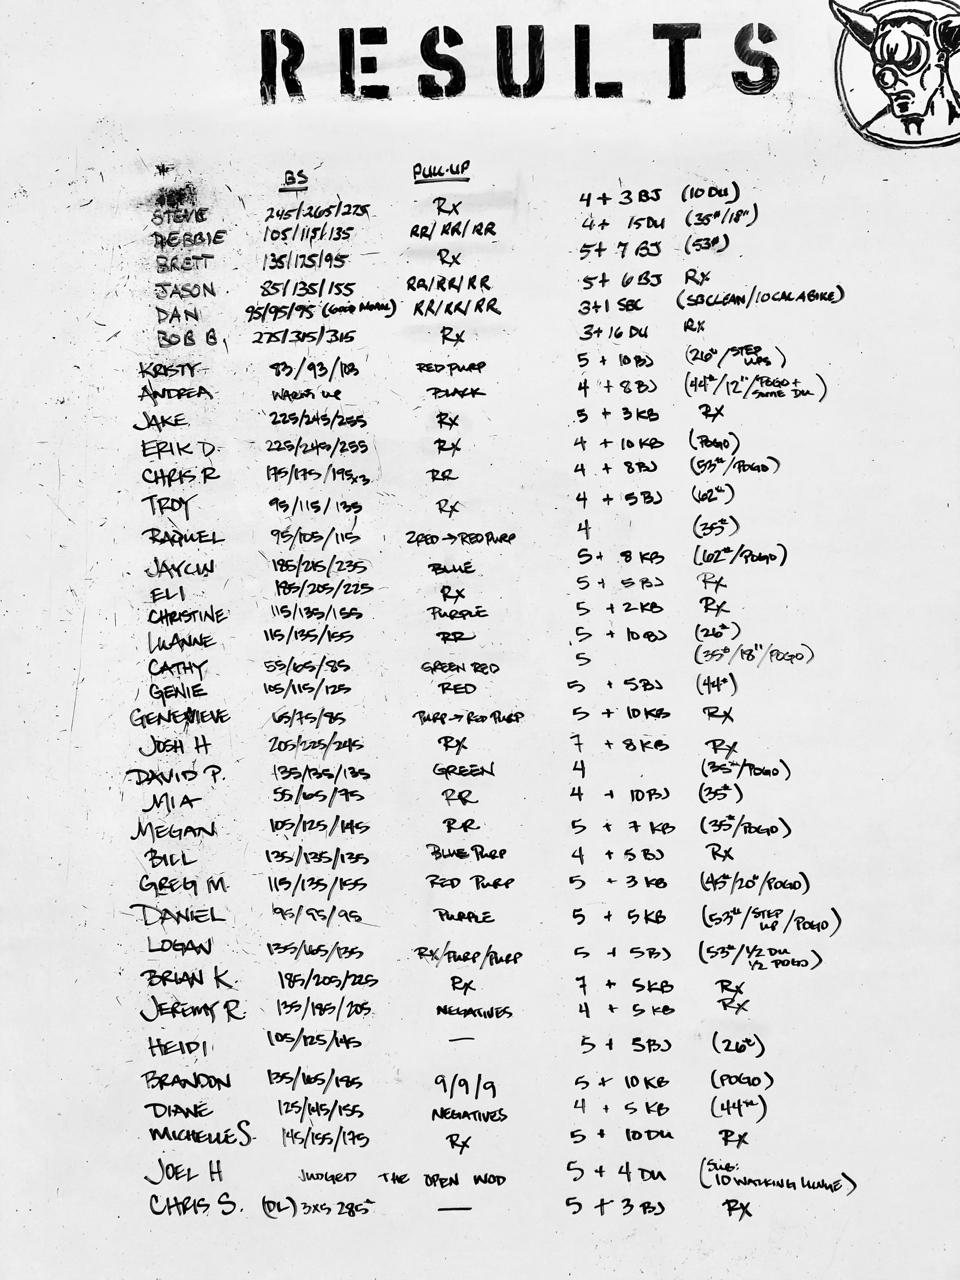 RESULTS
* BS PULL-UP
STEVE 245/265/225 Rx 4 + 3 BJ (10 DU)
DEBBIE 105/115/135 RR/RR/RR 4 + 15 DU (35#/18")
BRETT 135/175/95 Rx 5 + 7 BJ (53#)
JASON 85/135/155 RR/RR/RR 5 + 6 BJ Rx
DAN 95/95/95 (GOOD MORN) RR/RR/RR 3+1 SBC (SBCLEAN/10 CAL ABIKE)
BOB B. 275/315/315 Rx 3 + 16 DU Rx
KRISTY 83/93/113 RED PURP 5 + 10 BJ (26#/STEP UPS)
ANDREA WARM UP BLACK 4 + 8 BJ (44#/12"/POGO + SOME DU)
JAKE 225/245/255 Rx 5 + 3 KB Rx
ERIK D. 225/245/255 Rx 4 + 10 KB (POGO)
CHRIS R 175/175/195x3 RR 4 + 8 BJ (53#/POGO)
TROY 95/115/135 Rx 4 + 5 BJ (62#)
RAQUEL 95/105/115 2RED → RED PURP 4 (35#)
JAYCIN 185/215/235 BLUE 5 + 8 KB (62#/POGO)
ELI 185/205/225 Rx 5 + 5 BJ Rx
CHRISTINE 115/135/155 PURPLE 5 + 2 KB Rx
LUANNE 115/135/155 RR 5 + 10 BJ (26#)
CATHY 55/65/85 GREEN RED 5 (35#/18"/POGO)
GENIE 105/115/125 RED 5 + 5 BJ (44#)
GENEVIEVE 65/75/85 PURP → RED PURP 5 + 10 KB Rx
JOSH H 205/225/245 Rx 7 + 8 KB Rx
DAVID P. 135/135/135 GREEN 4 (35#/POGO)
MIA 55/65/75 RR 4 + 10 BJ (35#)
MEGAN 105/125/145 RR 5 + 7 KB (35#/POGO)
BILL 135/135/135 BLUE PURP 4 + 5 BJ Rx
GREG M. 115/135/155 RED PURP 5 + 3 KB (45#/20"/POGO)
DANIEL 95/95/95 PURPLE 5 + 5 KB (53#/STEP UP/POGO)
LOGAN 135/165/135 Rx/PURP/PURP 5 + 5 BJ (53#/1/2 DU 1/2 POGO)
BRIAN K. 185/205/225 Rx 7 + 5 KB Rx
JEREMY R. 135/185/205 NEGATIVES 4 + 5 KB Rx
HEIDI 105/125/145 — 5 + 5 BJ (26#)
BRANDON 135/165/185 9/9/9 5 + 10 KB (POGO)
DIANE 125/145/155 NEGATIVES 4 + 5 KB (44#)
MICHELLE S. 145/155/175 Rx 5 + 10 DU Rx
JOEL H JUDGED THE OPEN WOD 5 + 4 DU (SUB: 10 WALKING LUNGE)
CHRIS S. (DL) 3x5 285# — 5 + 3 BJ Rx